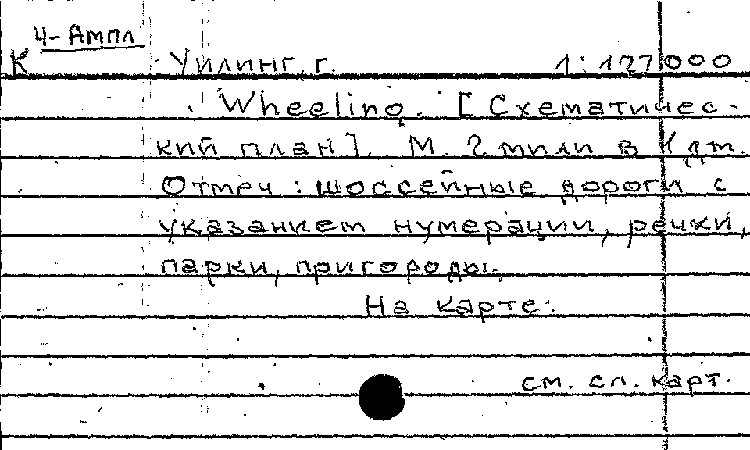 4-Ампл
К Уилинг, г. 1:127000
Wheeling. [Схематичес-
кий план]. М. 2 мили в 1 дм.
Отмеч: шоссейные дороги с
указанием нумерации, речки,
парки, пригороды.
На карте:
см. сл. карт.